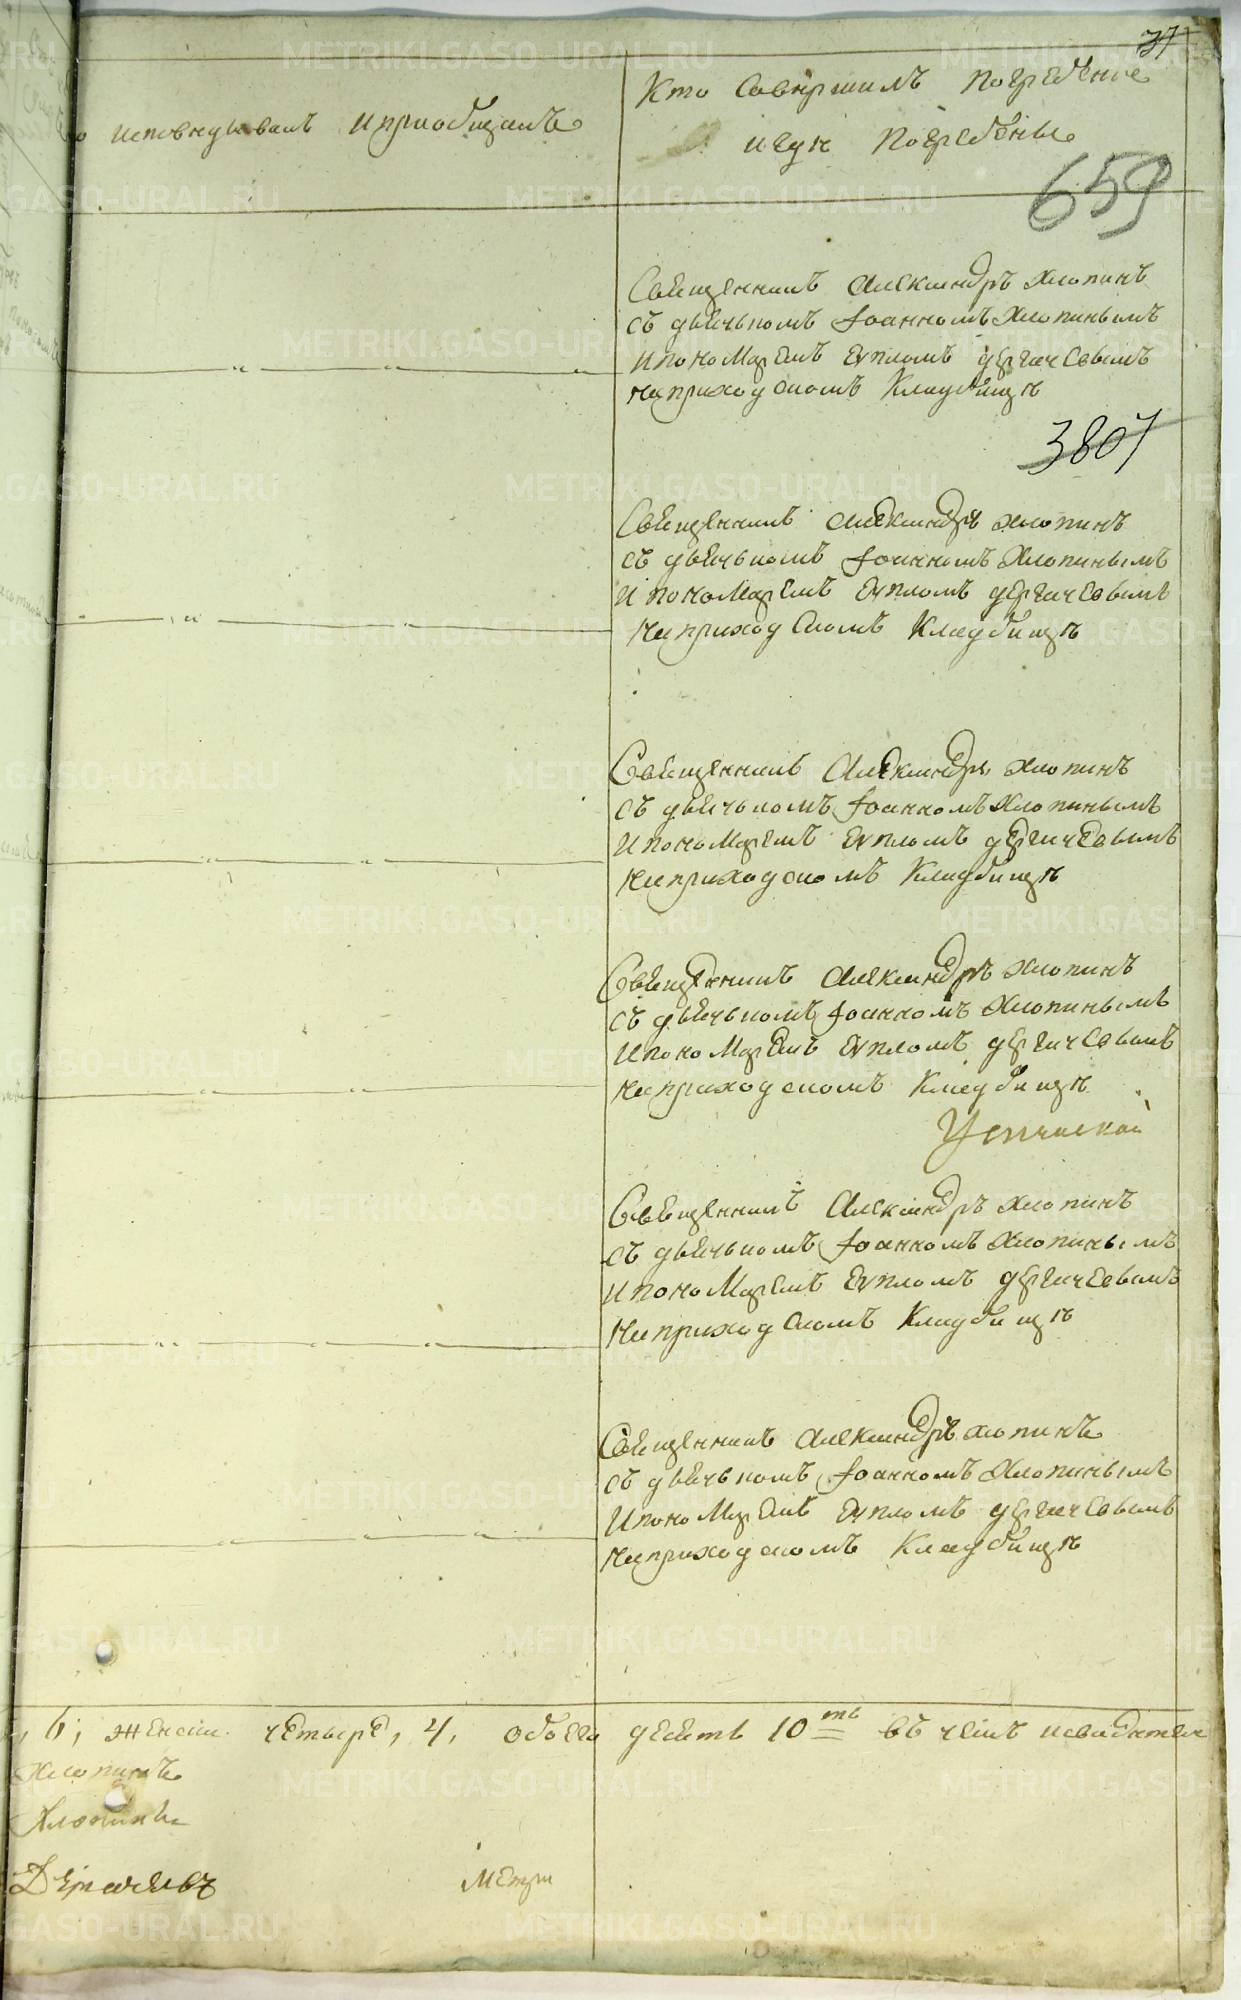 37
о исповѣдывалъ и приобщалъ
Кто Совершилъ Погребение
и гдѣ Погребены
659
Священникъ Александръ Хлопинъ
съ дьячькомъ Iоанномъ Хлопинымъ
и пономаремъ Еѵпломъ Дергачевымъ
на приходскомъ Кладбищѣ
3807
Священникъ Александръ Хлопинъ
съ дьячькомъ Iоанномъ Хлопинымъ
и пономаремъ Еѵпломъ Дергачевымъ
на приходскомъ Кладбищѣ
Священникъ Александръ Хлопинъ
съ дьячькомъ Iоанномъ Хлопинымъ
и пономаремъ Еѵпломъ Дергачевымъ
на приходскомъ Кладбищѣ
Священникъ Александръ Хлопинъ
съ дьячькомъ Iоанномъ Хлопинымъ
и пономаремъ Еѵпломъ Дергачевымъ
на приходскомъ Кладбищѣ
Священникъ Александръ Хлопинъ
съ дьячькомъ Iоанномъ Хлопинымъ
и пономаремъ Еѵпломъ Дергачевымъ
на приходскомъ Кладбищѣ
Священникъ Александръ Хлопинъ
съ дьячькомъ Iоанномъ Хлопинымъ
и пономаремъ Еѵпломъ Дергачевымъ
на приходскомъ Кладбищѣ
, 6, женска. четыре, 4, обоего десеть 10ть въ чемъ и свидетел
Хлопинъ
Хлопинъ
Дергачевъ
Метри